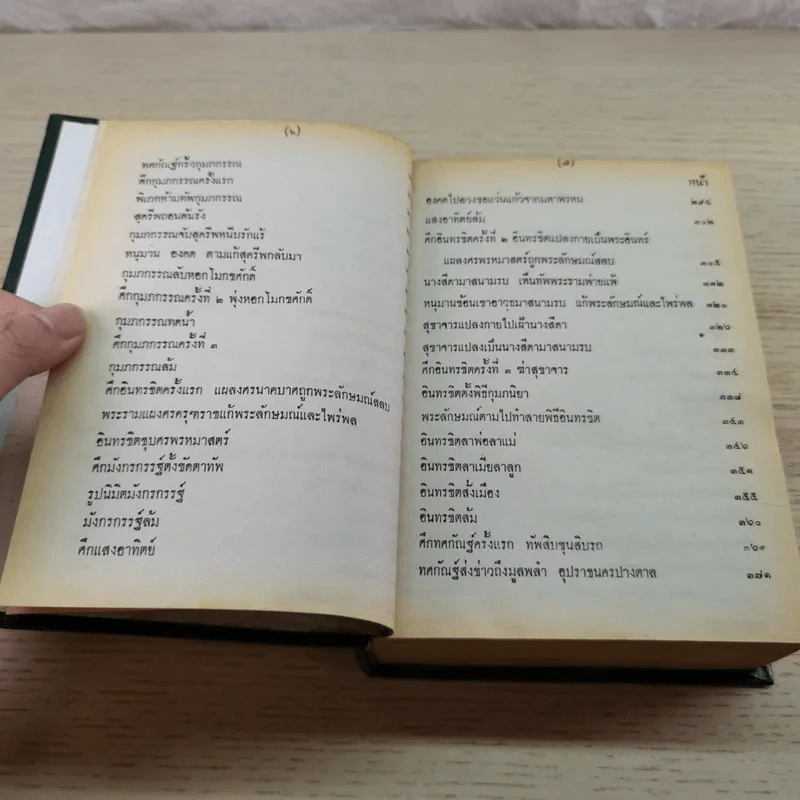 (๖)
ทศกัณฐ์กริ้วกุมภกรรณ
ศึกกุมภกรรณครั้งแรก
พิเภกห้ามทัพกุมภกรรณ
สุครีพถอนต้นรัง
กุมภกรรณจับสุครีพหนีบรักแร้
หนุมาน องคต ตามแก้สุครีพกลับมา
กุมภกรรณลับหอกโมกขศักดิ์
ศึกกุมภกรรณครั้งที่ ๒ พุ่งหอกโมกขศักดิ์
กุมภกรรณทดน้ำ
ศึกกุมภกรรณครั้งที่ ๓
กุมภกรรณล้ม
ศึกอินทรชิตครั้งแรก แผลงศรนาคบาศถูกพระลักษมณ์สลบ
พระรามแผงศรครุฑราชแก้พระลักษมณ์และไพร่พล
อินทรชิตชุบศรพรหมาสตร์
ศึกมังกรกรรฐ์ตั้งขัดตาทัพ
รูปนิมิตมังกรกรรฐ์
มังกรกรรฐ์ล้ม
ศึกแสงอาทิตย์
(๗)
หน้า
องคตไปลวงขอแว่นแก้วจากมหาพรหม ๒๙๔
แสงอาทิตย์ล้ม ๓๐๒
ศึกอินทรชิตครั้งที่ ๒ อินทรชิตแปลงกายเป็นพระอินทร์
แผลงศรพรหมาสตร์ถูกพระลักษมณ์สลบ ๓๐๕
นางสีดามาสนามรบ เห็นทัพพระรามพ่ายแพ้ ๓๑๒
หนุมานช้อนเขาอาวุธมาสนามรบ แก้พระลักษมณ์และไพร่พล ๓๒๐
สุขาจารแปลงกายไปเฝ้านางสีดา ๓๒๖
สุขาจารแปลงเป็นนางสีดามาสนามรบ ๓๓๓
ศึกอินทรชิตครั้งที่ ๓ ฆ่าสุขาจาร ๓๓๔
อินทรชิตตั้งพิธีกุมภนิยา ๓๓๗
พระลักษมณ์ตามไปทำลายพิธีอินทรชิต ๓๔๓
อินทรชิตลาพ่อลาแม่ ๓๔๖
อินทรชิตลาเมียลาลูก ๓๕๑
อินทรชิตสั่งเมือง ๓๕๕
อินทรชิตล้ม ๓๖๐
ศึกทศกัณฐ์ครั้งแรก ทัพสิบขุนสิบรถ
ทศกัณฐ์ส่งข่าวถึงมูลพลำ อุปราชนครปางตาล ๓๗๑